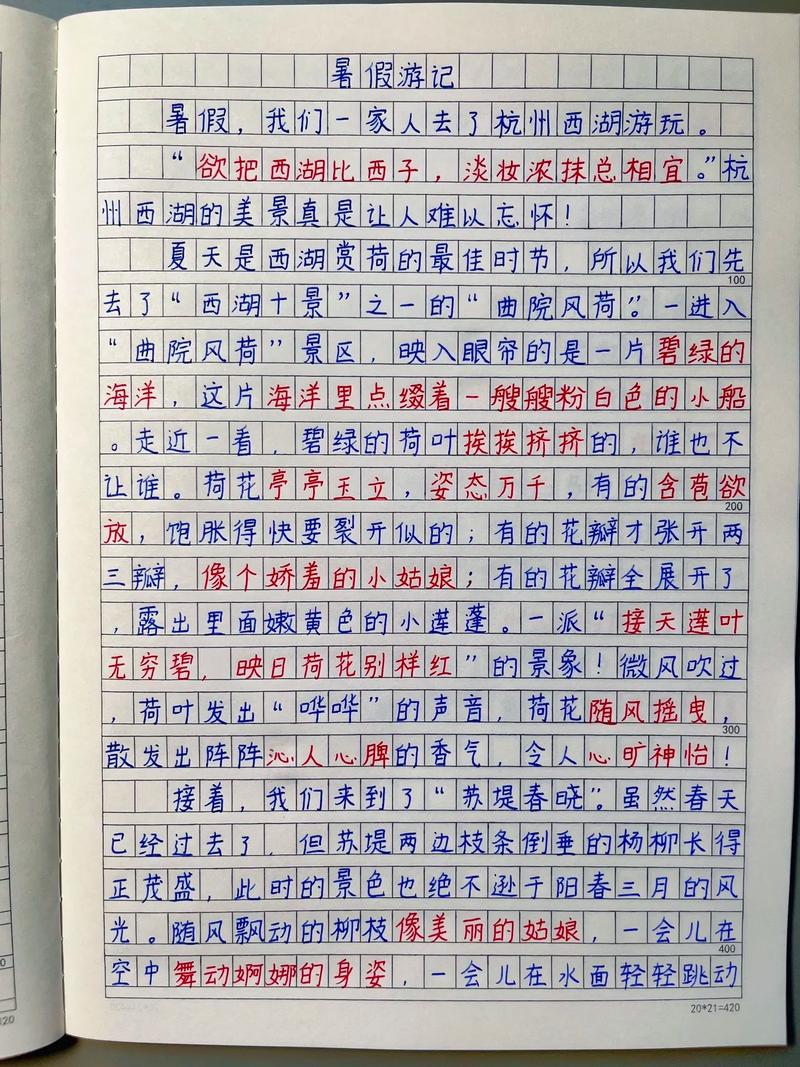 暑假游记
暑假，我们一家人去了杭州西湖游玩。
“欲把西湖比西子，淡妆浓抹总相宜。”杭
州西湖的美景真是让人难以忘怀！
夏天是西湖赏荷的最佳时节，所以我们先
100
去了“西湖十景”之一的“曲院风荷”。一进入
“曲院风荷”景区，映入眼帘的是一片碧绿的
海洋，这片海洋里点缀着一艘艘粉白色的小船
。走近一看，碧绿的荷叶挨挨挤挤的，谁也不
让谁。荷花亭亭玉立，姿态万千，有的含苞欲
200
放，饱胀得快要裂开似的；有的花瓣才张开两
三瓣，像个娇羞的小姑娘；有的花瓣全展开了
，露出里面嫩黄色的小莲蓬。一派“接天莲叶
无穷碧，映日荷花别样红”的景象！微风吹过
，荷叶发出“哗哗”的声音，荷花随风摇曳，
300
散发出阵阵沁人心脾的香气，令人心旷神怡！
接着，我们来到了“苏堤春晓”。虽然春天
已经过去了，但苏堤两边枝条倒垂的杨柳长得
正茂盛，此时的景色也绝不逊于阳春三月的风
光。随风飘动的柳枝像美丽的姑娘，一会儿在
400
空中舞动婀娜的身姿，一会儿在水面轻轻跳动
20*21=420